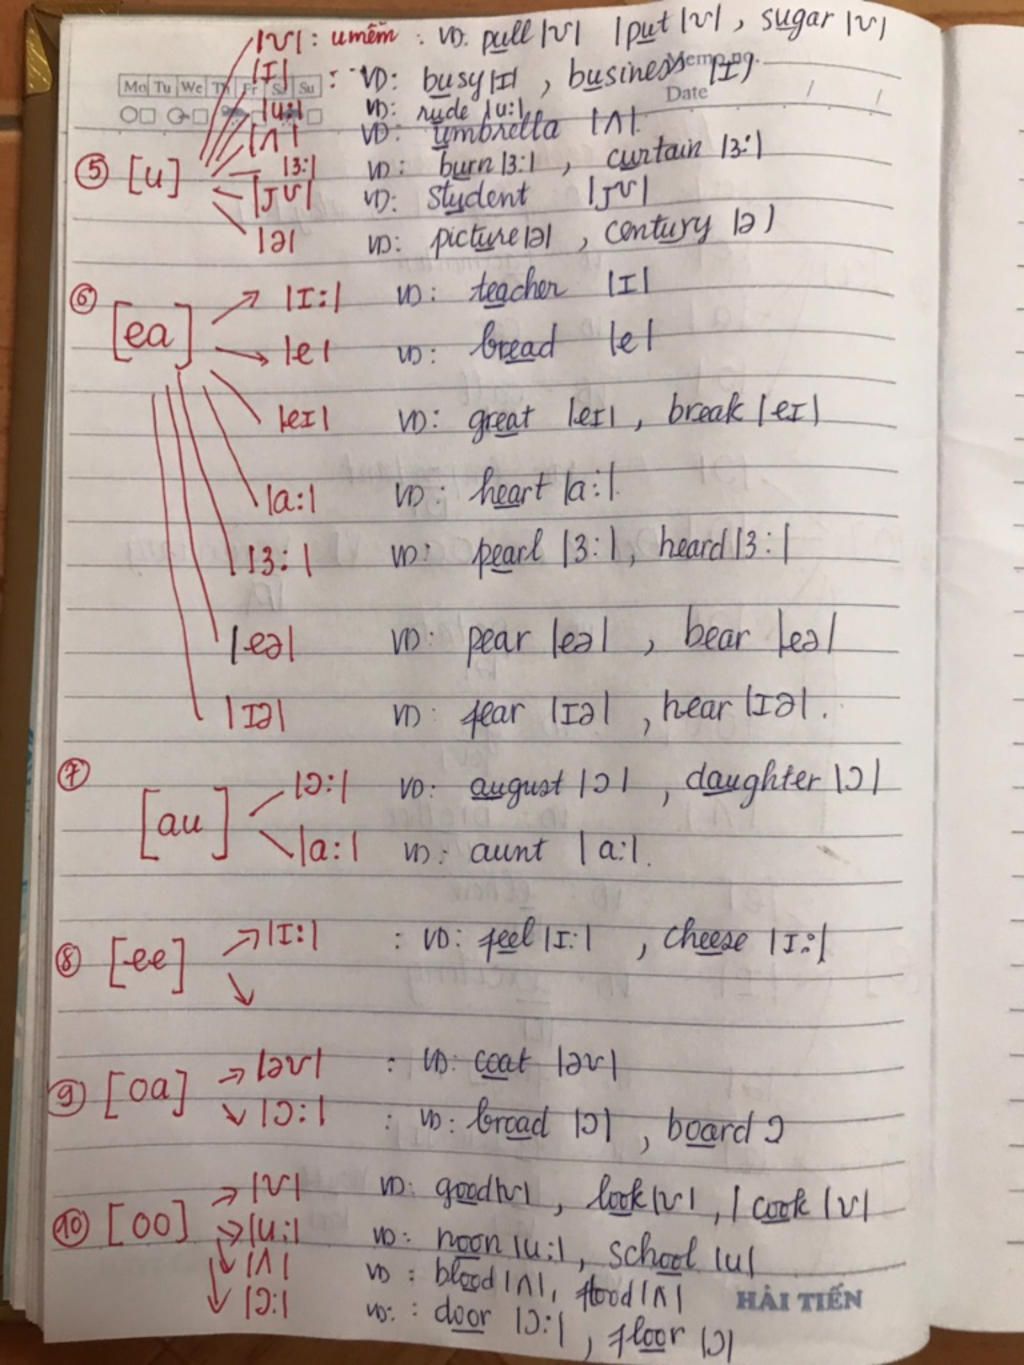 |ʊ| : u mềm : VD: pull |ʊ| |put |ʊ| , sugar |ʊ|
|ɪ| : VD: busy |ɪ| , business |ɪ|
Memo no.
Mo Tu We Th Fr Sa Su
Date / /
|u:| VD: rude |u:|
|ʌ| VD: umbrella |ʌ|
⑤ [u] |3:| VD: burn |3:| , curtain |3:|
|jʊ| VD: student |jʊ|
|ə| VD: picture |ə| , century |ə)
⑥ [ea] |I:| VD: teacher |I|
|e| VD: bread |e|
|eɪ| VD: great |eɪ| , break |eɪ|
|a:| VD: heart |a:|.
|3:| VD: pearl |3:| , heard |3:|
|eə| VD: pear |eə| , bear |eə|
|ɪə| VD: fear |ɪə| , hear |ɪə| .
⑦ [au] |ɔ:| VD: august |ɔ| , daughter |ɔ|
|a:| VD: aunt |a:|.
⑧ [ee] |I:| : VD: feel |I:| , cheese |I:|
⑨ [oa] |əʊ| : VD: coat |əʊ|
|ɔ:| : VD: broad |ɔ| , board ɔ
⑩ [oo] |ʊ| VD: good |ʊ| , look |ʊ| , | cook |ʊ|
|u:| VD: noon |u:| , school |u|
|ʌ| VD: blood |ʌ| , flood |ʌ|
HẢI TIẾN
|ɔ:| VD: : door |ɔ:| , floor |ɔ|